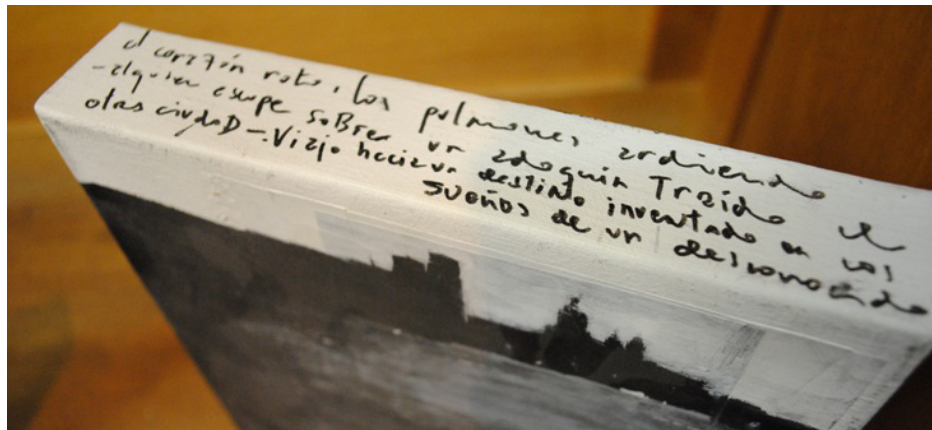 el corazón roto, los pulmones ardiendo
-alguien escupe sobre un adoquín Traído
otra ciudaD-. Viajo hacia un destino inventado en los
sueños de un desconocido